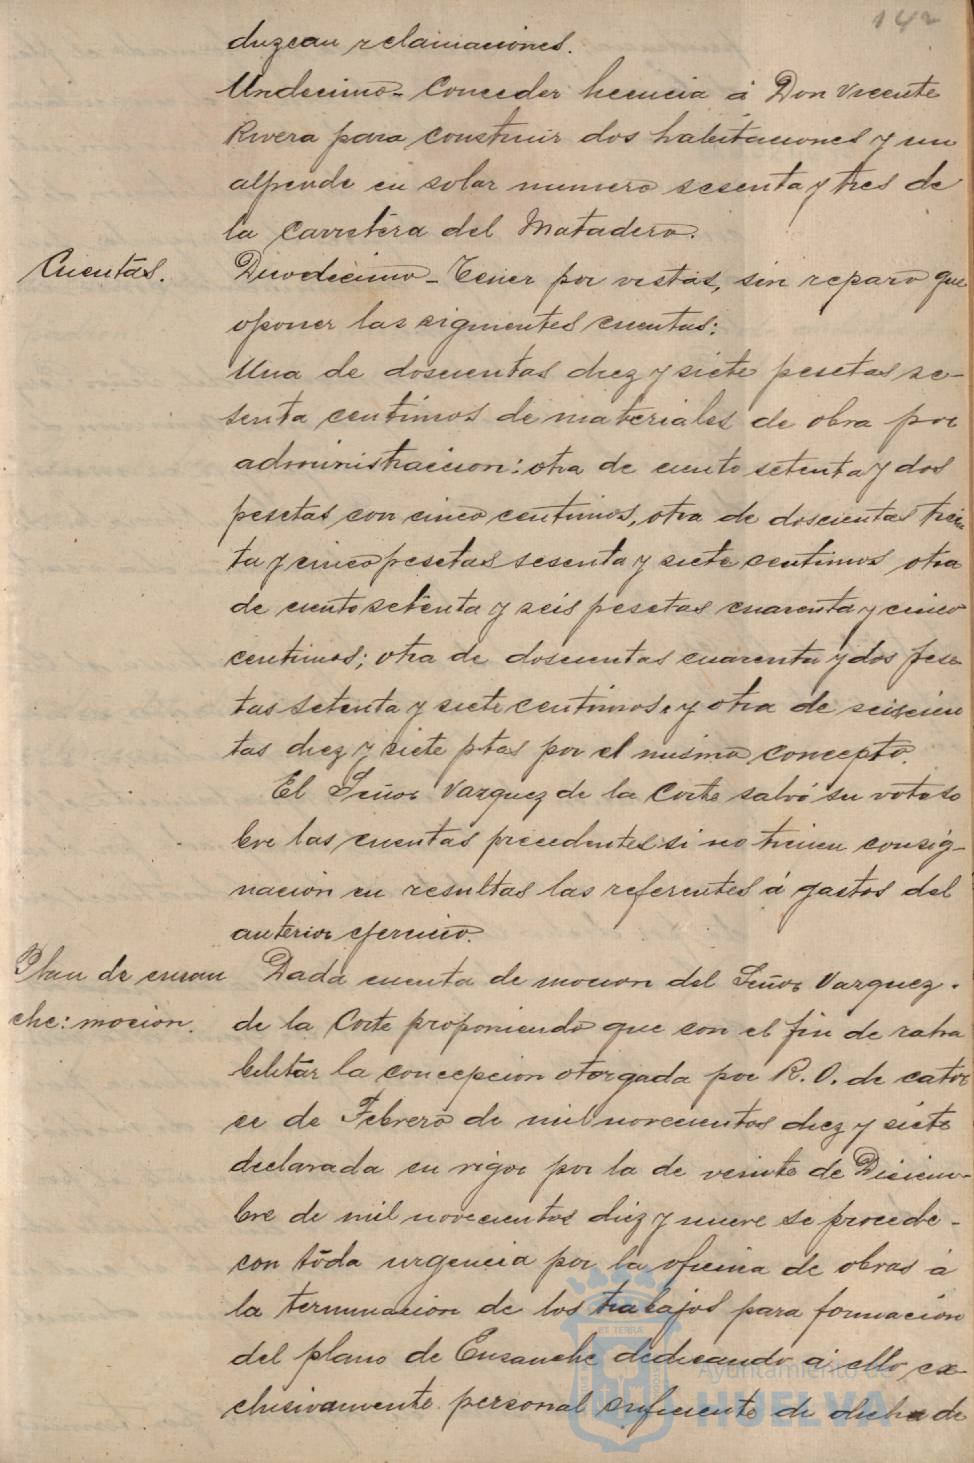 142
duzcan reclamaciones.
Undecimo - Conceder licencia á Don Vicente
Rivera para construir dos habitaciones y un
alpende en solar numero sesenta y tres de
la Carretera del Matadero.
Cuentas.
Duodecimo - Tener por vistas, sin reparo que
oponer las siguientes cuentas:
Una de doscientas diez y siete pesetas se-
tenta centimos de materiales de obra por
administracion: otra de ciento setenta y dos
pesetas con cinco centimos, otra de doscientas trein
ta y cinco pesetas sesenta y siete centimos otra
de ciento setenta y seis pesetas cuarenta y cinco
centimos; otra de doscientas cuarenta y dos pese
tas setenta y siete centimos, y otra de seiscien
tas diez y siete ptas por el mismo concepto.
El Señor Vazquez de la Corte salvó su voto so
bre las cuentas precedentes si no tienen consig-
nación en resultas las referentes á gastos del
anterior ejercicio.
Plan de ensan
che: mocion.
Dada cuenta de mocion del Señor Vazquez
de la Corte proponiendo que con el fin de
bilitar la concepcion otorgada por R. O. de cator
ce de Febrero de mil novecientos diez y siete
declarada en rigor por la de veinte de Diciem-
bre de mil novecientos diez y nueve se procede-
con toda urgencia por la oficina de obras á
la terminacion de los trabajos para formacion
del plano de Ensanche dedicando á ello ex-
clusivamente personal suficiente de dicha de
Ayuntamiento de
HUELVA